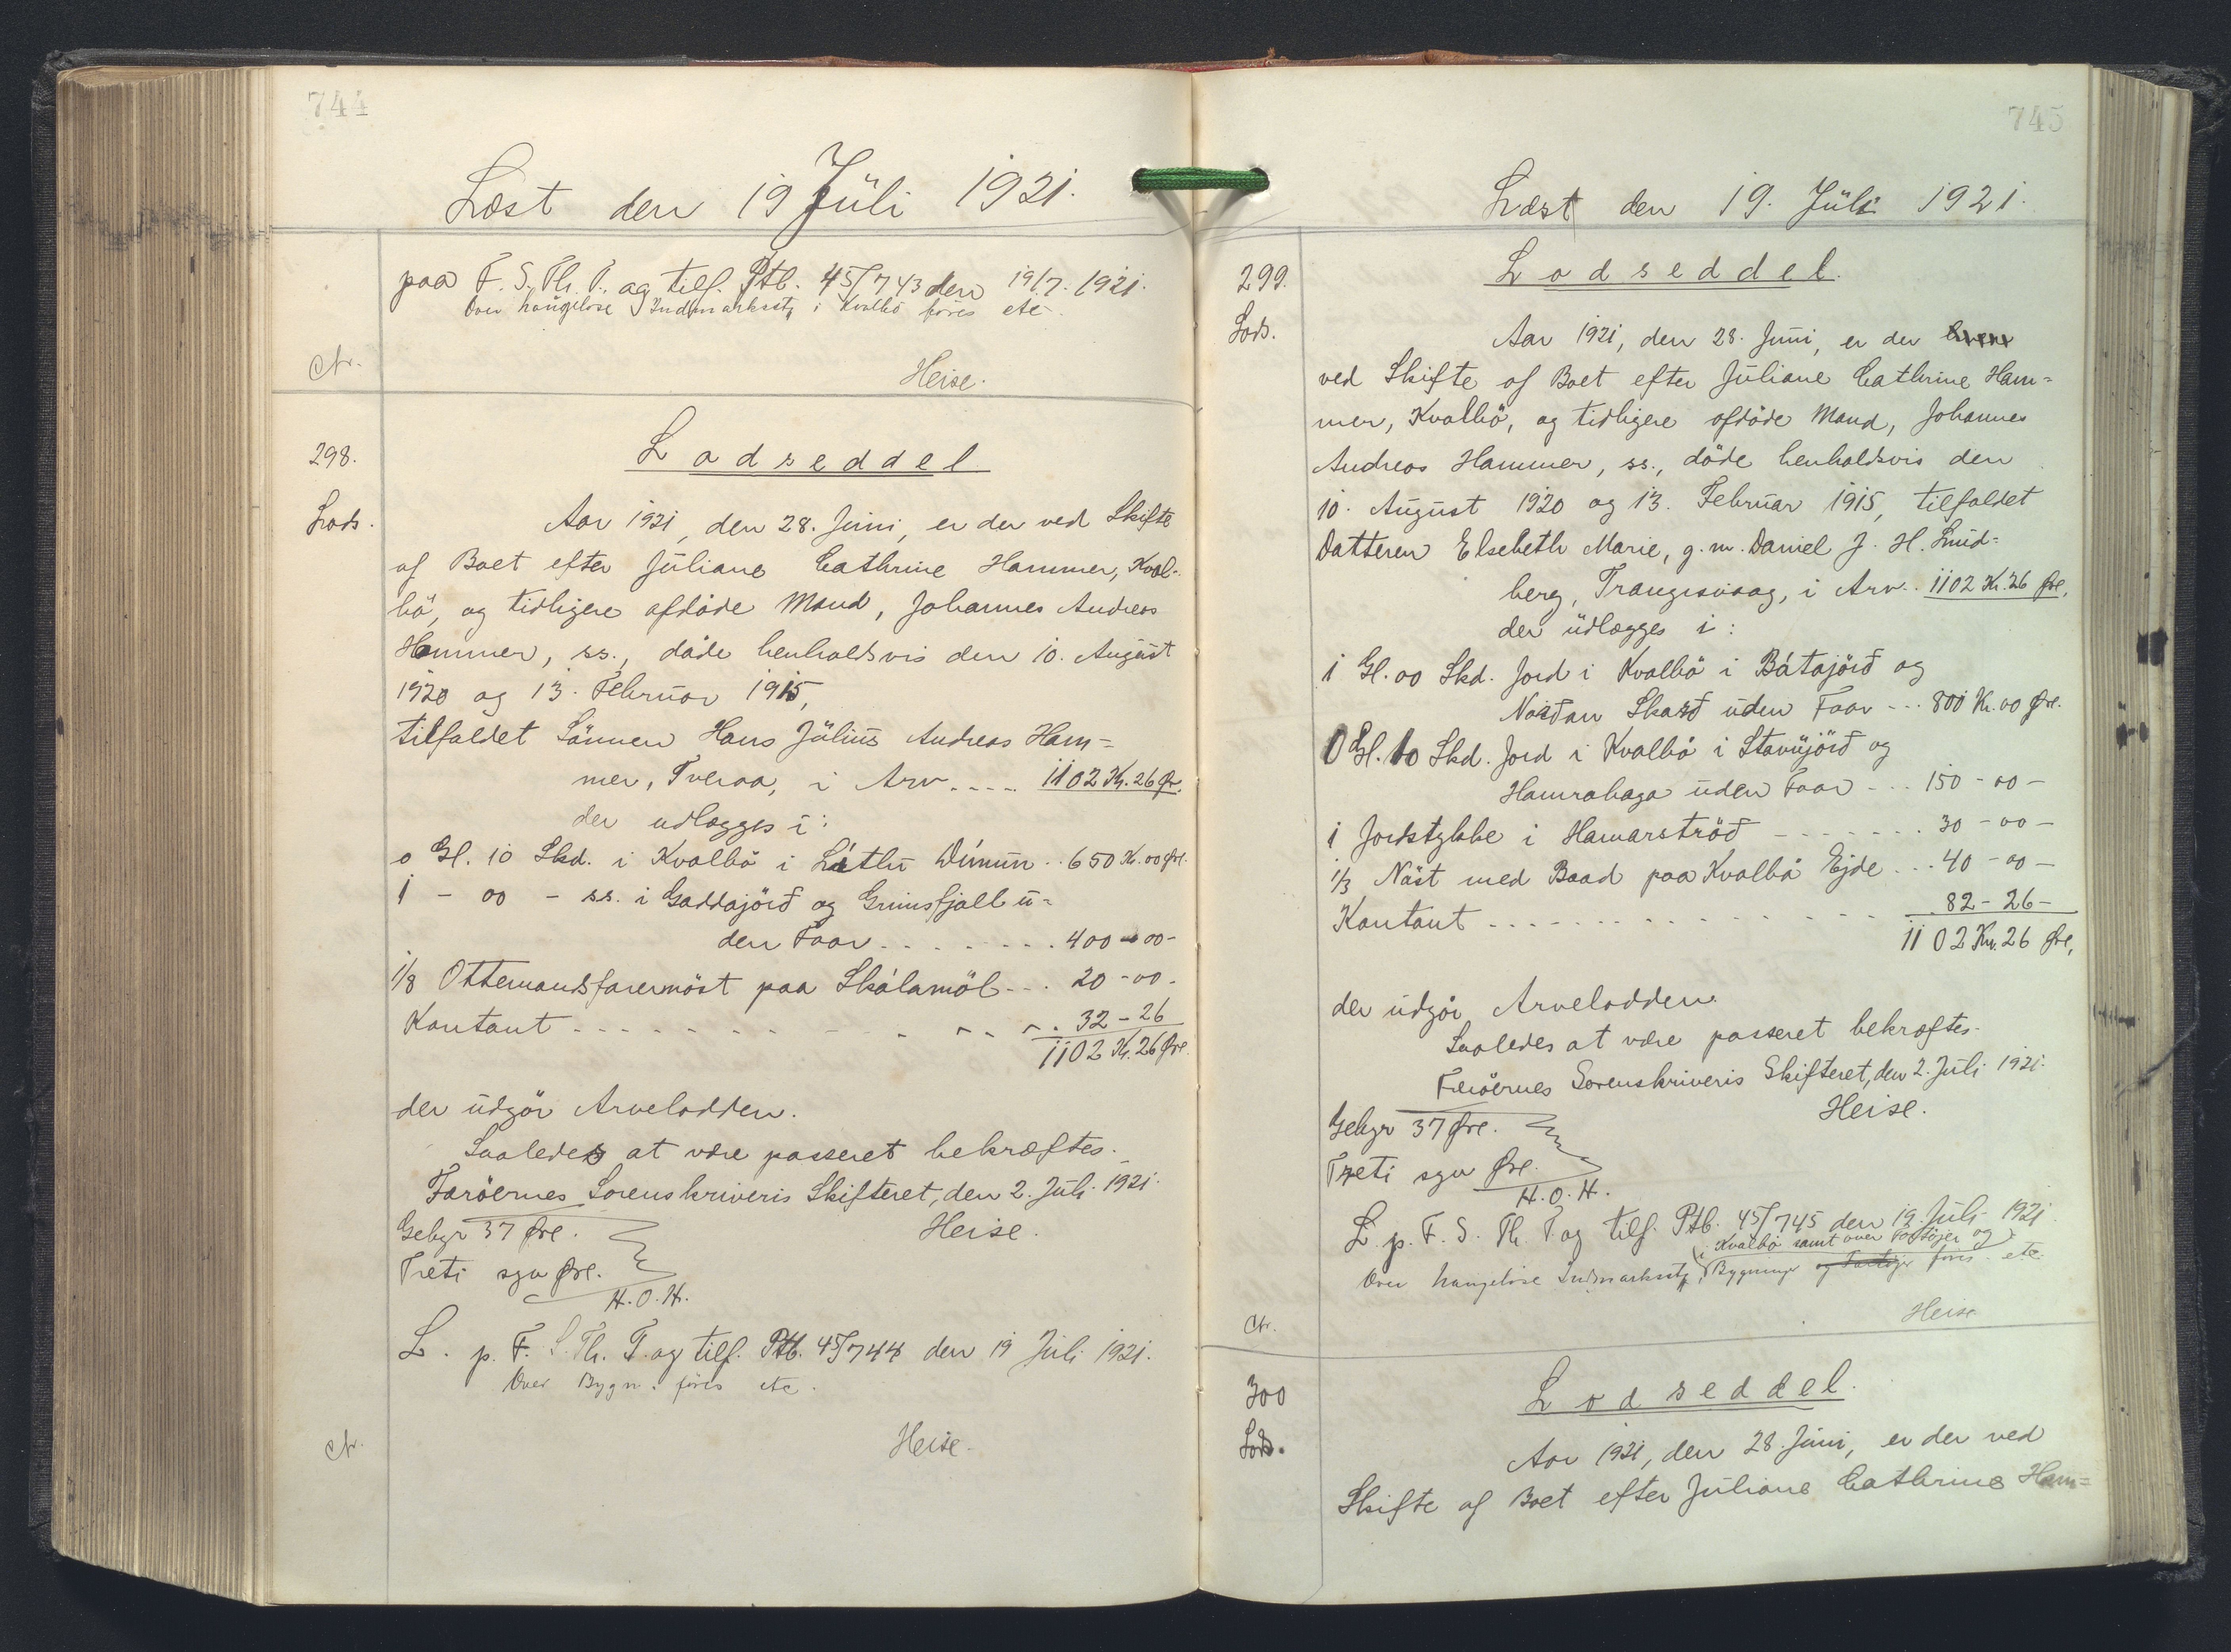 744
Læst den 19 Jüli 1921.
paa F. S. Th. T. og tilf. Ptb. 45/743 den 19/7. 1921.
Over haugeløse Indmarksstr i Kvalbö föres etc.
Ctr.
Heise.
298.
Lodseddel
Lods.
Aar 1921, den 28. Juni, er der ved Skifte
af Boet efter Jüliane Cathrine Hammer, Kval-
bö, og tidligere afdöde Mand, Johannes Andreas
Hammer, ss., döde henholdsvis den 10. Augüst
1920 og 13. Febrüar 1915,
tilfaldet Sönnen Hans Jüliüs Andreas Ham=
mer, Tveraa, i Arv .... 1102 Kr. 26 Ør.
der udlægges i:
0 Gl. 10 Skd. i Kvalbö i Lítlü Dímün .. 650 Kr. 00 Øre.
1 - 00 - ss. i Gaddajörð og Grimsfjall ü=
den Faar ........ 400 - 00 -
1/8 Ottemandsfarernöst paa Skálamöl ... 20 - 00 -
Kontant ........ 32 - 26
1102 Kr. 26 Øre.
der üdgör Arvelodden.
Saaledes at være passeret bekræftes.
Færöernes Sorenskriveris Skifteret, den 2. Jüli 1921.
Gebyr 37 Øre.
Heise.
Treti sgu Øre.
H. O. H.
L. p. F. S. Th. T. og tilf. Ptb. 45/744 den 19 Jüli 1921.
Over Bygn. föres etc.
Ctr.
Heise.
745
Læst den 19. Jüli 1921.
299.
Lodseddel.
Lods.
Aar 1921, den 28. Jüni, er der
ved Skifte af Boet efter Jüliane Cathrine Ham=
mer, Kvalbö, og tidligere afdöde Mand, Johannes
Andreas Hammer, ss., döde henholdsvis den
10. Augüst 1920 og 13. Febrüar 1915, tilfaldet
Datteren Elsebeth Marie, g. m. Daniel J. H. Lind=
berg, Trangisvaag, i Arv .. 1102 Kr. 26 Øre,
der üdlægges i:
1 Gl. 00 Skd. Jord i Kvalbö i Bátajörð og
Norðan Skarð üden Faar ... 800 Kr. 00 Øre.
0 Gl. 10 Skd. Jord i Kvalbö i Stavüjörð og
Hamrahaga üden Faar ... 150 - 00 -
1 Jordstykke i Hamarströð ........ 30 - 00 -
1/3 Nöst med Baad paa Kvalbö Ejde ... 40 - 00 -
Kontant ........ 82 - 26 -
1102 Kr. 26 Øre,
der üdgör Arvelodden.
Saaledes at være passeret bekræftes.
Færöernes Sorenskriveris Skifteret, den 2. Jüli 1921.
Gebyr 37 Øre.
Heise.
Treti sgu Øre.
H. O. H.
L. p. F. S. Th. T. og tilf. Ptb. 45/745 den 19. Jüli 1921
i Kvalbö samt over Fartöjer og
Over haugeløse Indmarksstr, Bygninger og Fartöjer föres etc.
Ctr.
Heise
300
Lodseddel.
Lods.
Aar 1921, den 28. Jüni, er der ved
Skifte af Boet efter Jüliane Cathrine Ham=